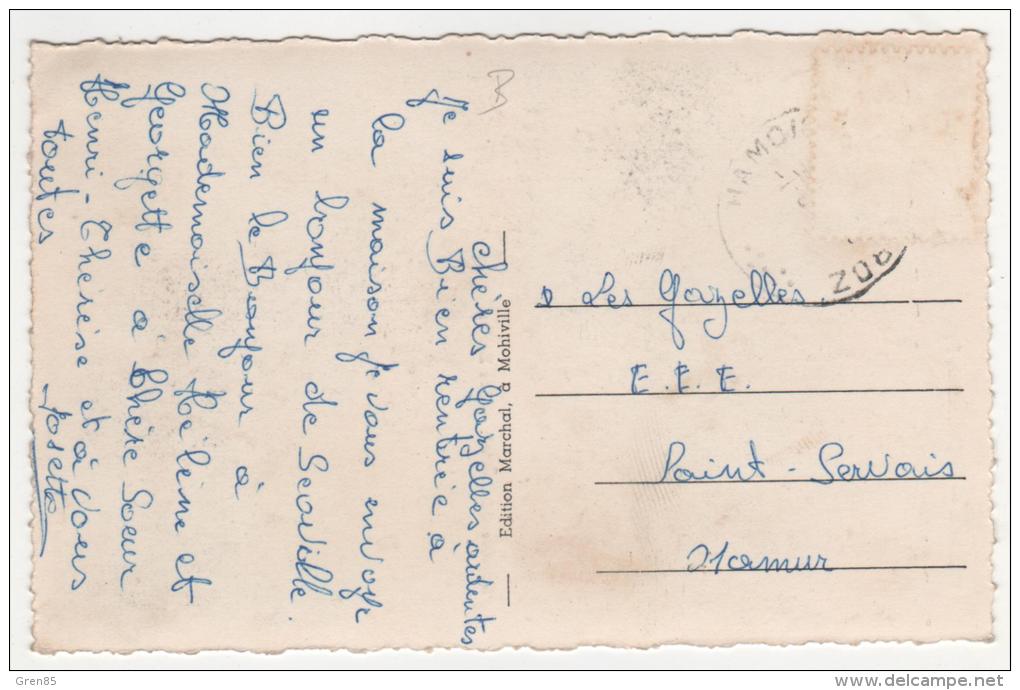 Chères Gazelles ardentes
Je suis Bien rentrée à
la maison je vous envoye
un bonjour de Scoville.
Bien le Bonjour à
Mademoiselle Hélène et
Georgette à Chère Soeur
Henri-Thérèse et à vous
toutes
Josette
Edition Marchal, à Mohiville
HAMOI
Les Gazelles
E. E. E.
Saint-Servais
Namur
Gren85
http://www.delcampe.net